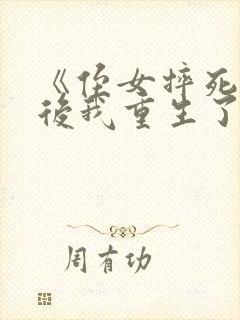 《侄女摔死
後我重生了
周有功